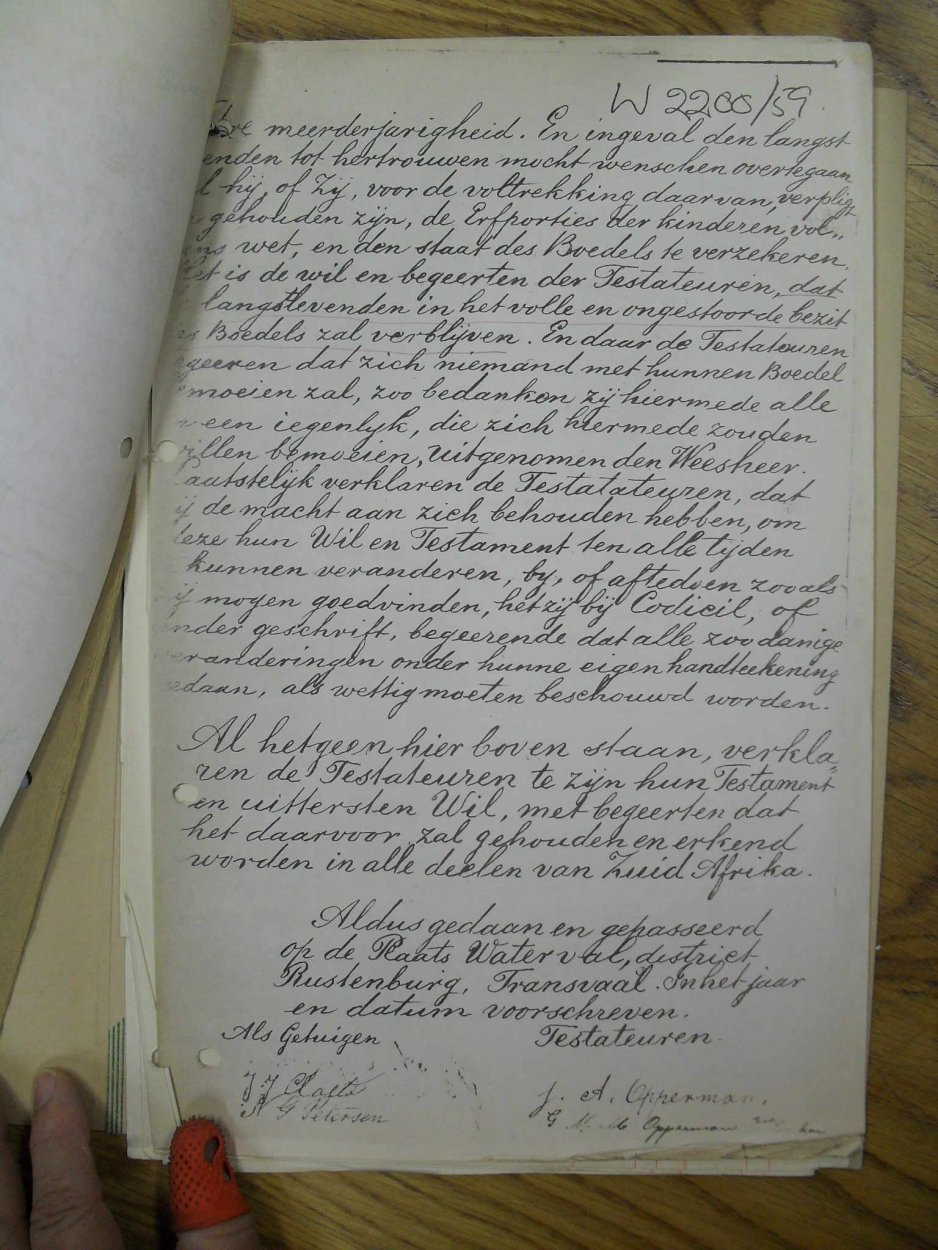 W 2200/59.
meerderjarigheid. En ingeval den langst
enden tot hertrouwen mocht wenschen overtegaan
l hij, of Zij, voor de voltrekking daarvan, verpligt
gehouden zijn, de Erfporties der kinderen vol„
ens wet, en den staat des Boedels te verzekeren.
et is de wil en begeerten der Testateuren, dat
langstlevenden in het volle en ongestoorde bezit
s Boedels zal verblijven. En daar de Testateuren
geeren dat zich niemand met hunnen Boedel
emoeien zal, zoo bedanken zij hiermede alle
een iegenlyk, die zich hiermede zouden
illen bemoeien, uitgenomen den Weesheer.
aatstelijk verklaren de Testatateuren, dat
ij de macht aan zich behouden hebben, om
deze hun Wil en Testament ten alle tijden
kunnen veranderen, by, of aftedoen zooals
ij mogen goedvinden, het zij bij Codicil, of
nder geschrift, begeerende dat alle zoodanige
eranderingen onder hunne eigen handteekening
edaan, als wettig moeten beschouwd worden.
Al hetgeen hier boven staan, verkla„
ren de Testateuren te zijn hun Testament
en uittersten Wil, met begeerten dat
het daarvoor zal gehouden en erkend
worden in alle deelen van Zuid Afrika.
Aldus gedaan en gepasseerd
op de Plaats Waterval, district
Rustenburg, Transvaal. In het jaar
en datum voorschreven.
Als Getuigen Testateuren.
J. A. Opperman.
G Petersen
G M Opperman